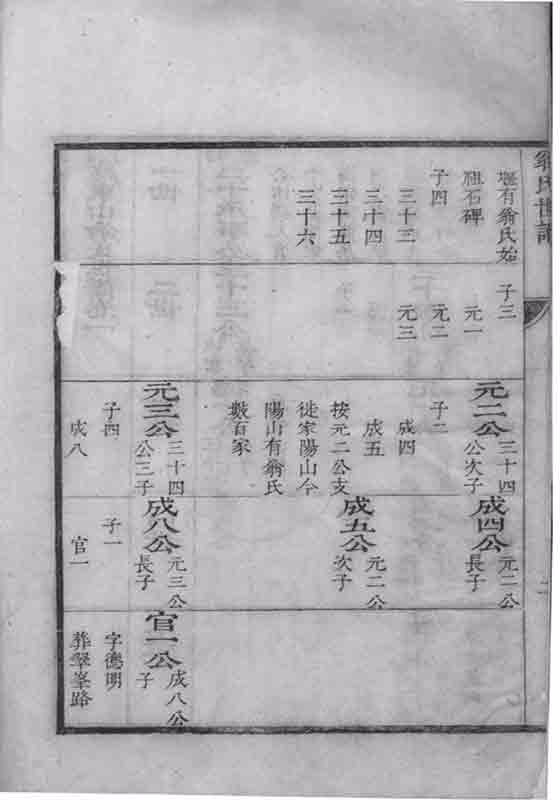 翁氏世譜
堰有翁氏始
祖石碑
子四
三十三
三十四
三十五
三十六
子三
元一
元二
元三
元二公
三十四
公次子
子二
成四
成五
按元二公支
徙家陽山今
陽山有翁氏
數百家
元三公
三十四
公三子
子四
成八
成四公
元二公
長子
成五公
元二公
次子
成八公
元三公
長子
子一
官一
官一公
成八公
子
字德明
葬翠峯路